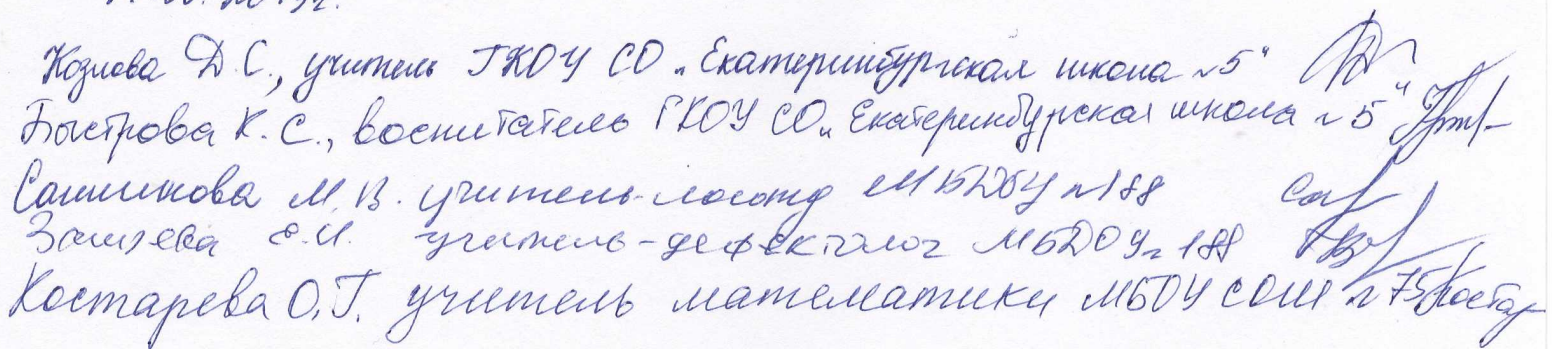 Козлова Д.С., учитель ГКОУ СО „Екатеринбургская школа №5"
Быстрова К.С., воспитатель ГКОУ СО „Екатеринбургская школа №5"
Санникова М.В. учитель-логопед МБДОУ №188
Е.И. учитель-дефектолог МБДОУ №188
Костарева О.Г. учитель математики МБОУ СОШ №75 Костар